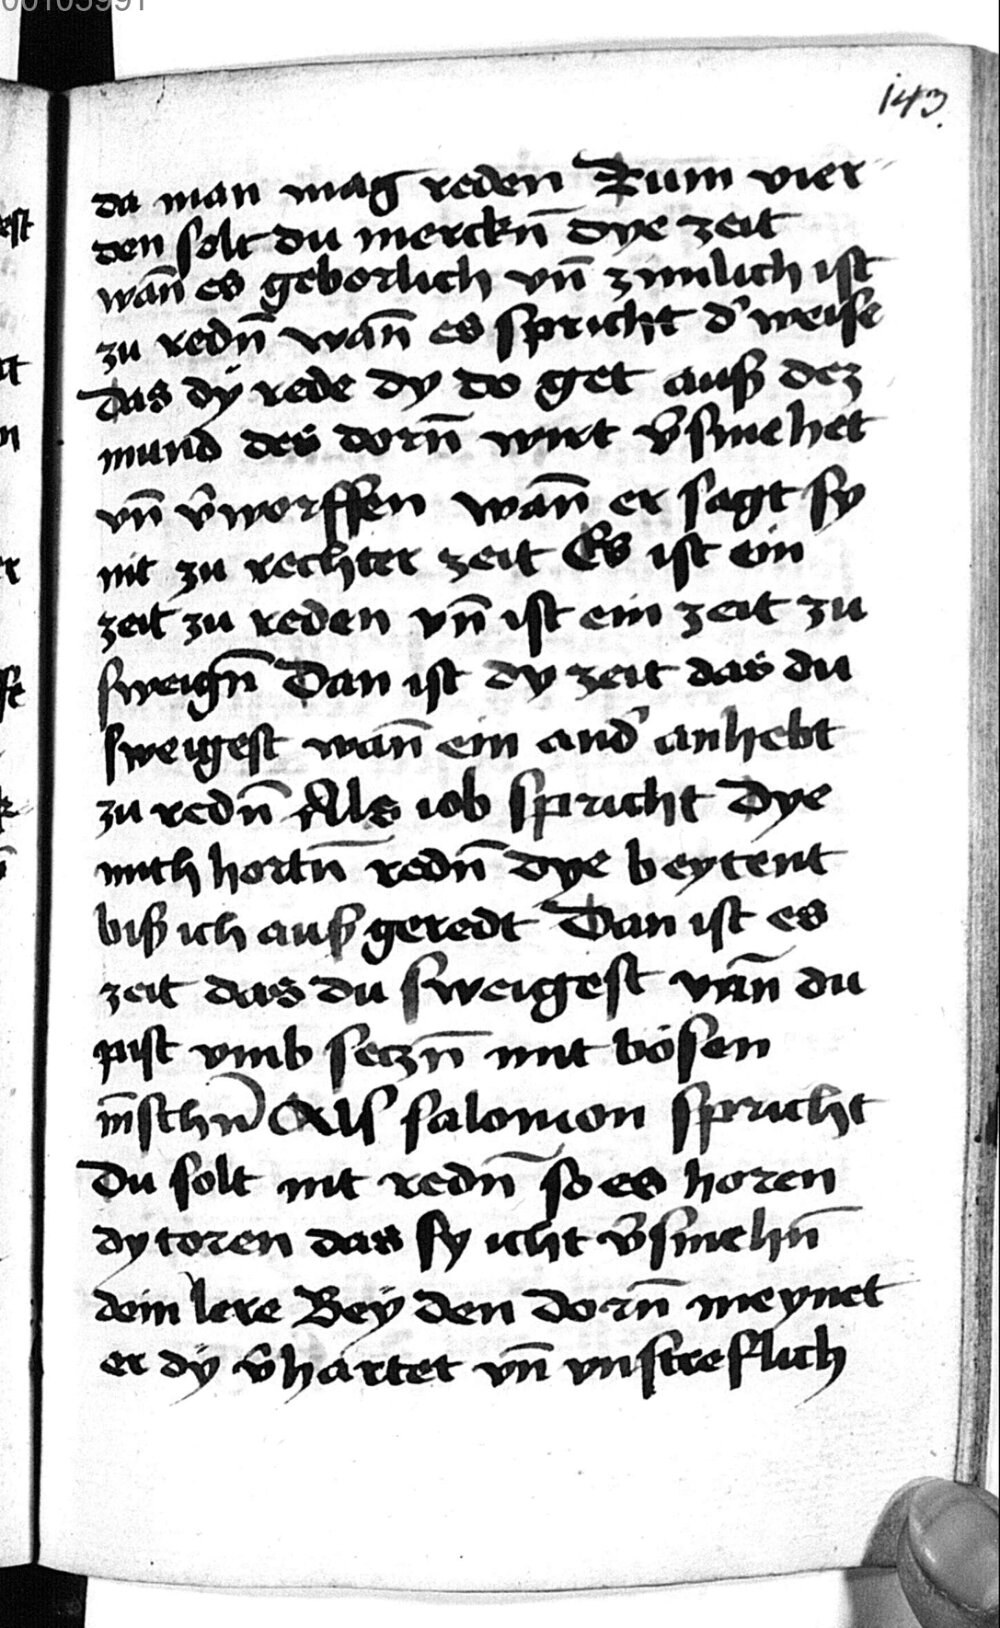 00105991
143.
da man mag reden Zum vier
den solt du merckn̄ dye zeit
wan̄ es geborlich vn̄ zimlich ist
zu redn̄ wan̄ es spricht d' weise
Das dÿ rede dy do get auß dez
mund des dorn̄ wirt v̄smehet
vn̄ v̄worffen wan̄ er sagt sy
nit zu rechter zeit Es ist ein
zeit zu reden vn̄ ist ein zeit zu
sweign̄ Dan ist dy zeit das du
sweigest wan̄ ein and' anhebt
zu redn̄ Als iob spricht Dye
mich hortn̄ redn̄ dye beytent
biß ich auß geredt Dan ist es
zeit das du sweigest wan̄ du
pist vmb seczn̄ mit bösen
m̄schn̄ Als salomon spricht
Du solt nit redn̄ so es horen
dy toren das sy icht v̄smehn̄
dein lere Beÿ den dorn̄ meynet
er dÿ v̄hartet vn̄ vnstreflich